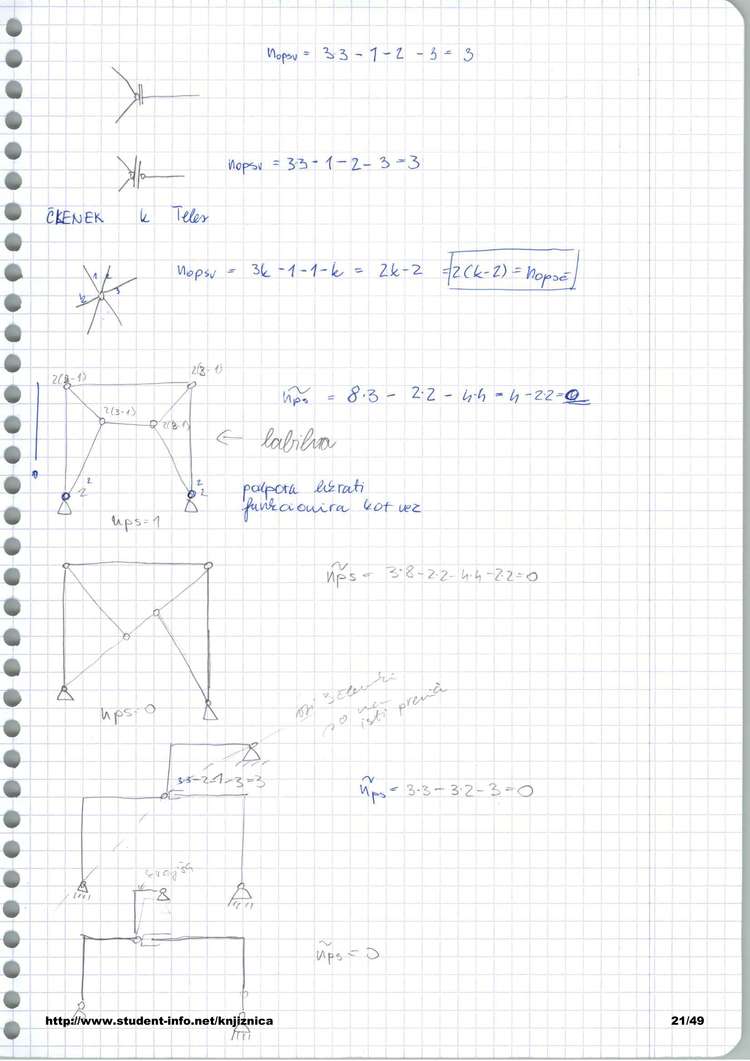 nopsv = 3·3 - 1 - 2 - 3 = 3
nopsv = 3·3 - 1 - 2 - 3 = 3
ČLENEK k Teles
1
3
k
nopsv = 3k - 1 - 1 - k = 2k - 2 = 2(k-2) = nopsč
2(3-1) 2(3-1)
ñps = 8·3 - 2·2 - 4·4 = 4 - 2·2 = 0
2(3-1) 2(3-1)
← labilna
2 2
2 2
podpora hkrati
funkcionira kot vez
nps=1
ñps = 3·8 - 2·2 - 4·4 - 2·2 = 0
nps=0
vsi 3 členki
so na
isti premi
3·3-2-1-3=3
ñps = 3·3 - 3·2 - 3 = 0
ñps = 0
http://www.student-info.net/knjiznica 21/49